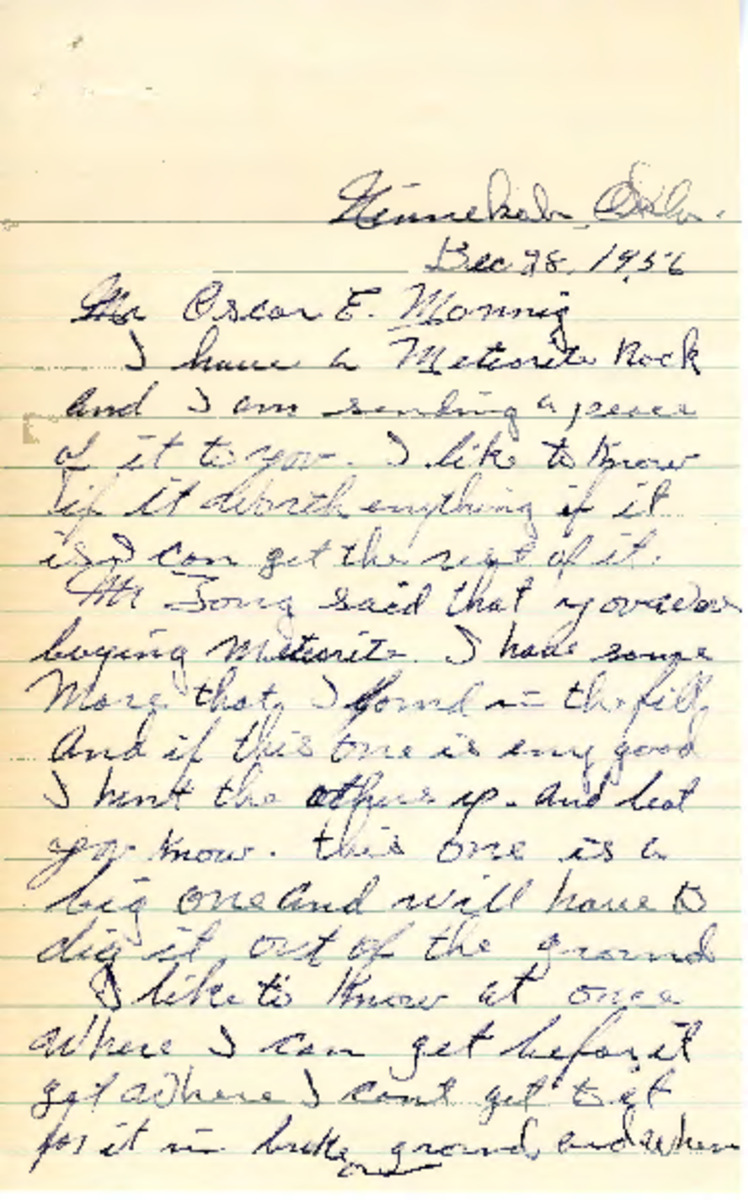 Ninnekah, Okla.
Dec 28, 1956
Mr Oscar E. Monnig
I have a Meteorite Rock
and I am sending a peace
of it to you. I like to Know
if it Worth enything if it
is I can get the rest of it.
Mr Tong said that you was
buying Meteorite. I have some
More that I found in the fill
And if this one is eny good
I hunt the others up. And let
you Know. this one is a
big one and will have to
dig it out of the ground
I like to Know at once
Where I can get before it
get Where I cant get to it
for it in broke ground and when